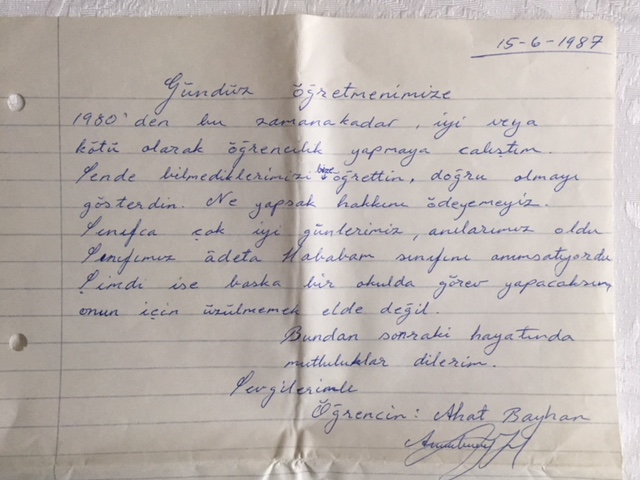 15-6-1987
Gündüz öğretmenimize
1980'den bu zamana kadar, iyi veya
kötü olarak öğrencilik yapmaya calıştım.
Sende bilmediklerimizi bize öğrettin, doğru olmayı
gösterdin. Ne yapsak hakkını ödeyemeyiz.
Sınıfca çok iyi günlerimiz, anılarımız oldu
Sınıfımız âdeta Hababam sınıfını anımsatıyordu
Şimdi ise baska bir okulda görev yapacaksın,
onun için üzülmemek elde değil.
Bundan sonraki hayatında
mutluluklar dilerim.
Sevgilerimle
Öğrencin: Ahat Bayhan